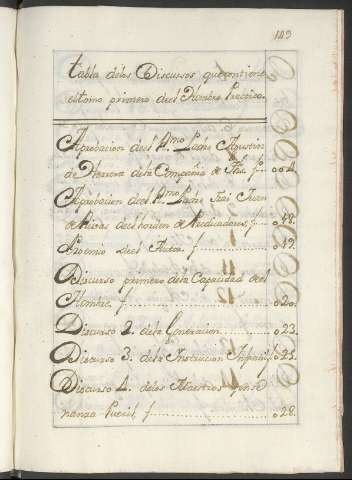 103
Tabla delos Discursos que contiene
el tomo primero del Hombre Practico.
Aprobacion del R.mo Padre Agustin
de Herrera dela Compañia de Jhs. f.. 004.
Aprobacion del R.mo Padre Frai Juan
del horden de Predicadores, f... 018.
Proemio del Autor f............ 019.
Discurso primero dela Capacidad del
Hombre. f....................... 020.
Discurso 2. dela Generacion........ 023.
Discurso 3. dela Instrucion Infantil f 025.
Discurso 4. delos Maestros y ense
nanza Pueril f................... 028.